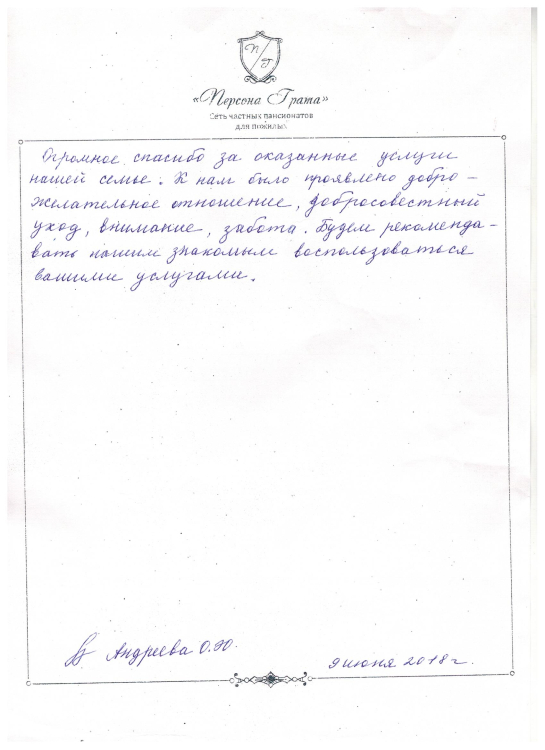 П/Г
«Персона Грата»
Сеть частных пансионатов
для пожилых
Огромное спасибо за оказанные услуги
нашей семье. К нам было проявлено добро-
желательное отношение, добросовестный
уход, внимание, забота. Будем рекоменда-
вать нашим знакомым воспользоваться
вашими услугами.
Андреева О.Ю.
9 июня 2018 г.